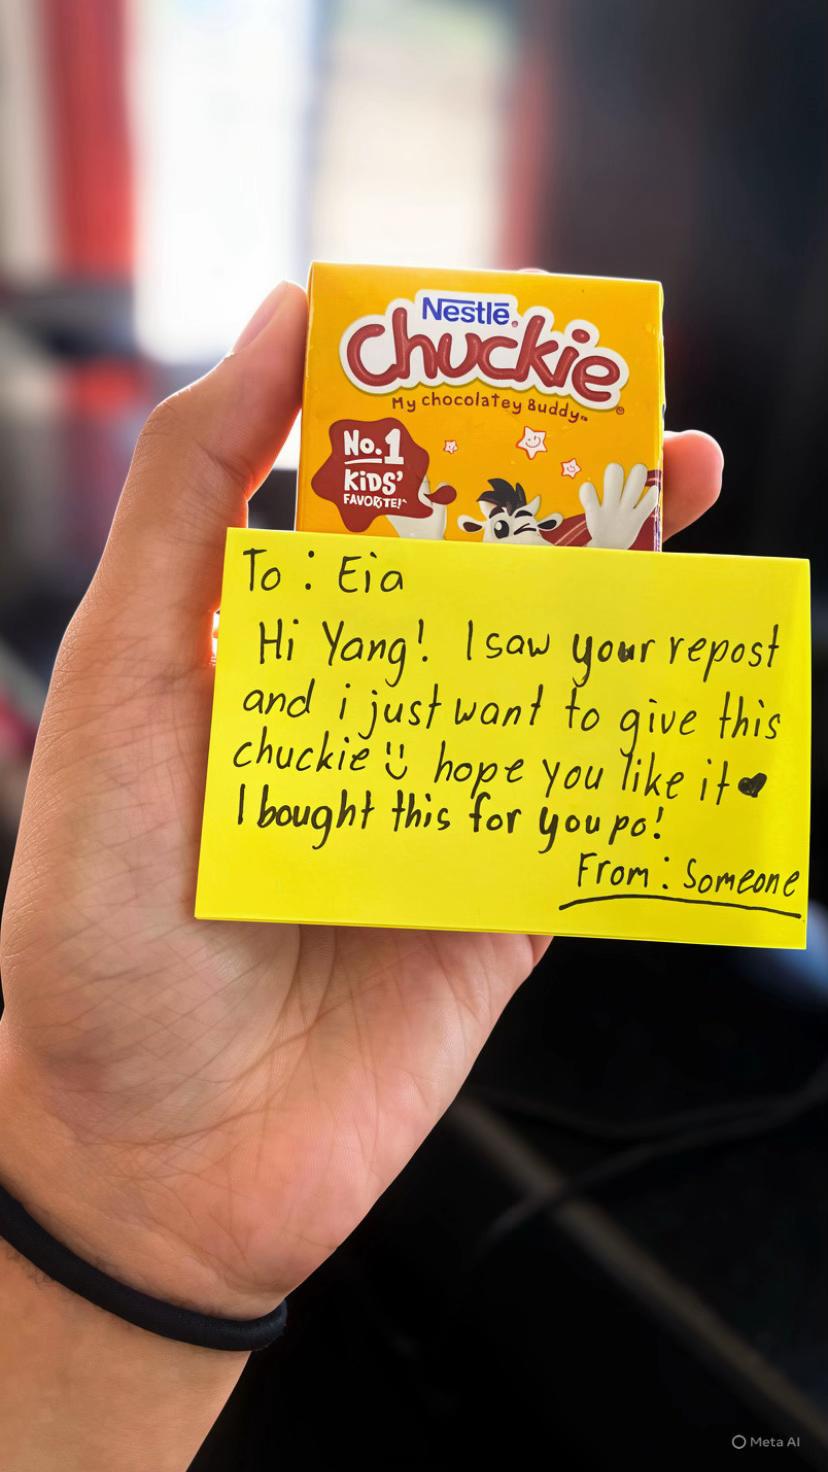 Nestlē
Chuckie
My chocolatey Buddy
No.1
KiDS'
FAVORiTE!
To : Eia
Hi Yang! I saw your repost
and i just want to give this
chuckie hope you like it
I bought this for you po!
From : Someone
Meta AI